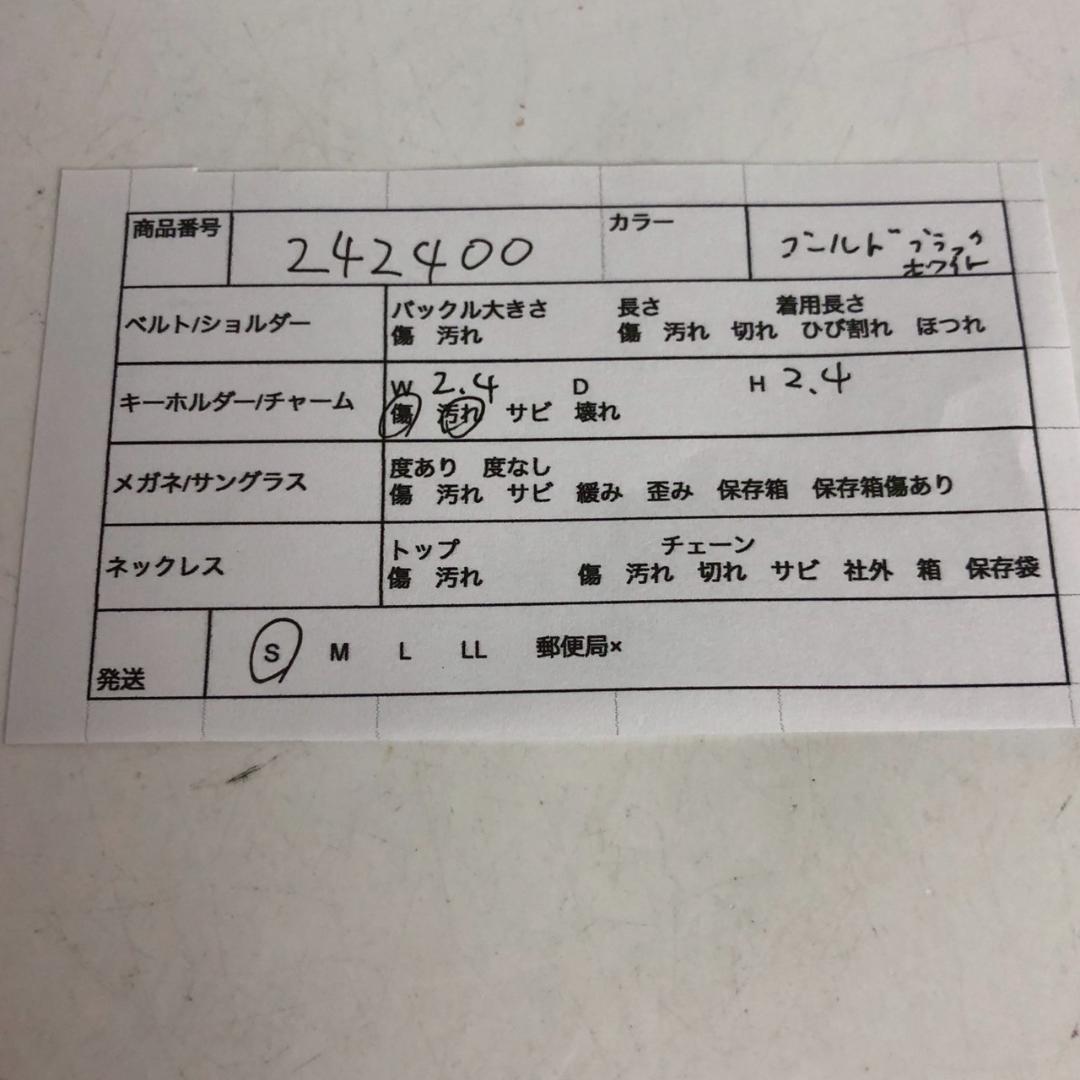 商品番号 242400 カラー ゴールド ブラック
ホワイト
ベルト/ショルダー バックル大きさ 長さ 着用長さ
傷 汚れ 傷 汚れ 切れ ひび割れ ほつれ
キーホルダー/チャーム W 2.4 D H 2.4
傷 汚れ サビ 壊れ
メガネ/サングラス 度あり 度なし
傷 汚れ サビ 緩み 歪み 保存箱 保存箱傷あり
ネックレス トップ チェーン
傷 汚れ 傷 汚れ 切れ サビ 社外 箱 保存袋
発送 S M L LL 郵便局×